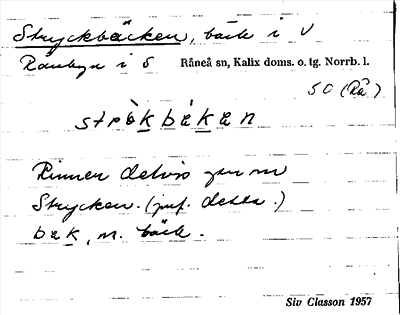 Stryckbäcken, bäck i V
Rånbyn i S Råneå sn, Kalix doms. o. tg. Norrb. l.
50 (Rå)
strò̀k bèkən
Rinner delvis genom
Strycken. (jmf. detta.)
bɛk, m. bäck.
Siv Classon 1957